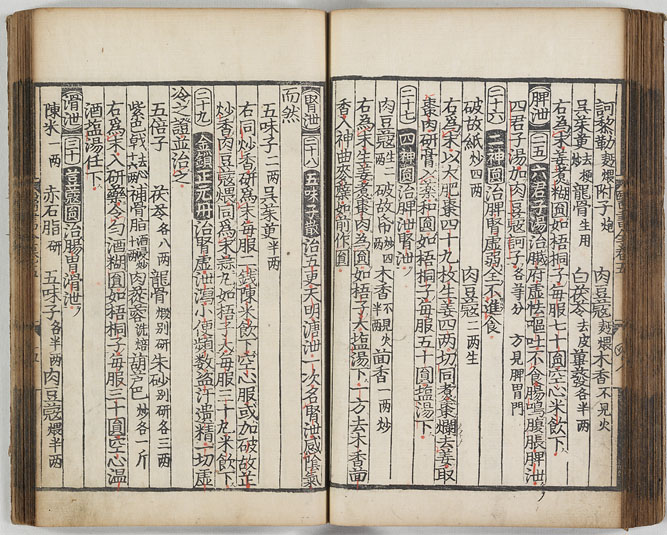 訶黎勒麫煨附子炮 肉豆蔻麫煨木香不見火
吳茱萸去梗龍骨生用 白茯苓去皮 各半兩
右爲末生姜煮糊圓如梧桐子每服七十圓空心米飲下
脾泄 二十五 六君子湯治臟府虛怯嘔吐不食腸鳴腹脹脾泄
四君子湯加肉豆蔻訶子各等分 方見脾胃門
二十六 二神圓治脾腎虛弱全不進食
破故紙炒四兩 肉豆蔻二兩生
右爲末以大肥棗四十九枚生姜四兩切同煮棗爛去姜取
棗肉研膏入藥和圓如梧桐子每服五十圓塩湯下
二十七 四神圓治脾泄腎泄
肉豆蔻生二兩破故帋炒四兩木香不見火半兩茴香一兩炒
右爲末生姜煮棗肉爲圓如梧子大塩湯下 一方去木香茴
香入神曲麥蘖如前作圓
胃泄 二十八 五味子散治五更天明溏泄一次名腎泄感陰氣
而然
五味子二兩吳茱萸半兩
右同炒香研爲末每服二錢陳米飲下空心服或加破故帋
炒香肉豆蔻煨同爲末蒜丸如梧子大每服三十丸米飲下
二十九 金鎖正元丹治腎虛泄瀉小便頻數盜汗遺精一切虛
冷之證並治之
五倍子 茯苓各八兩 龍骨煆別研 朱砂別研各三兩
紫巴戟去心補骨脂酒浸炒肉蓯蓉洗焙葫芦巴炒各一斤
右爲末入研藥令勻酒糊圓如梧桐子每服三十圓空心溫
酒塩湯任下
滑泄 三十 荳蔻圓治腸胃滑泄
陳米一兩 赤石脂研 五味子各半兩 肉豆蔻煨半兩